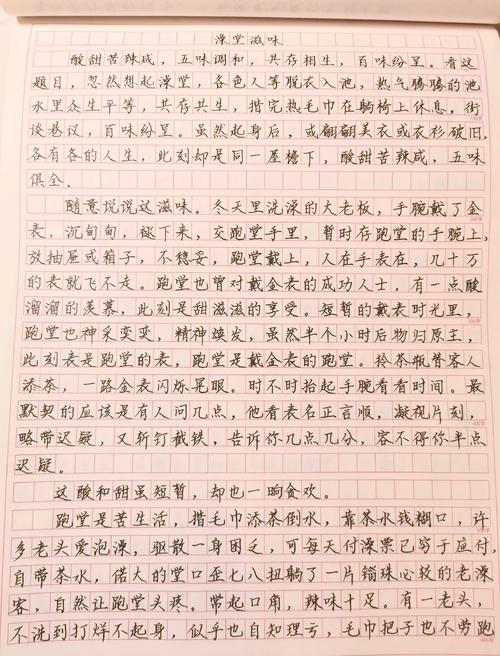 澡堂滋味
酸甜苦辣咸，五味调和，共存相生，百味纷呈。看这
题目，忽然想起澡堂，各色人等脱衣入池，热气腾腾的池
水里众生平等，共存共生，揩完热毛巾在躺椅上休息，街
谈巷议，百味纷呈。虽然起身后，或翩翩美衣或衣衫破旧，
各有各的人生，此刻却是同一屋檐下，酸甜苦辣咸，五味
俱全。
随意说说这滋味。冬天里洗澡的大老板，手腕戴了金
表，沉甸甸，褪下来，交跑堂手里，暂时存跑堂的手腕上，
放抽屉或箱子，不稳妥，跑堂戴上，人在手表在，几十万
的表就飞不走。跑堂也曾对戴金表的成功人士，有一点酸
溜溜的羡慕，此刻是甜滋滋的享受。短暂的戴表时光里，
跑堂也神采奕奕，精神焕发，虽然半个小时后物归原主，
此刻表是跑堂的表，跑堂是戴金表的跑堂。拎茶瓶替客人
添茶，一路金表闪烁晃眼。时不时抬起手腕看看时间。最
默契的应该是有人问几点，他看表名正言顺，凝视片刻，
略带迟疑，又斩钉截铁，告诉你几点几分，容不得你半点
迟疑。
这酸和甜虽短暂，却也一晌贪欢。
跑堂是苦生活，揩毛巾添茶倒水，靠茶水钱糊口，许
多老头爱泡澡，驱散一身困乏，可每天付澡票已穷于应付，
自带茶水，偌大的堂口歪七八扭躺了一片锱珠必较的老澡
客，自然让跑堂头疼。常起口角，辣味十足。有一老头，
不洗到打烊不起身，似乎也自知理亏，毛巾把子也不劳跑